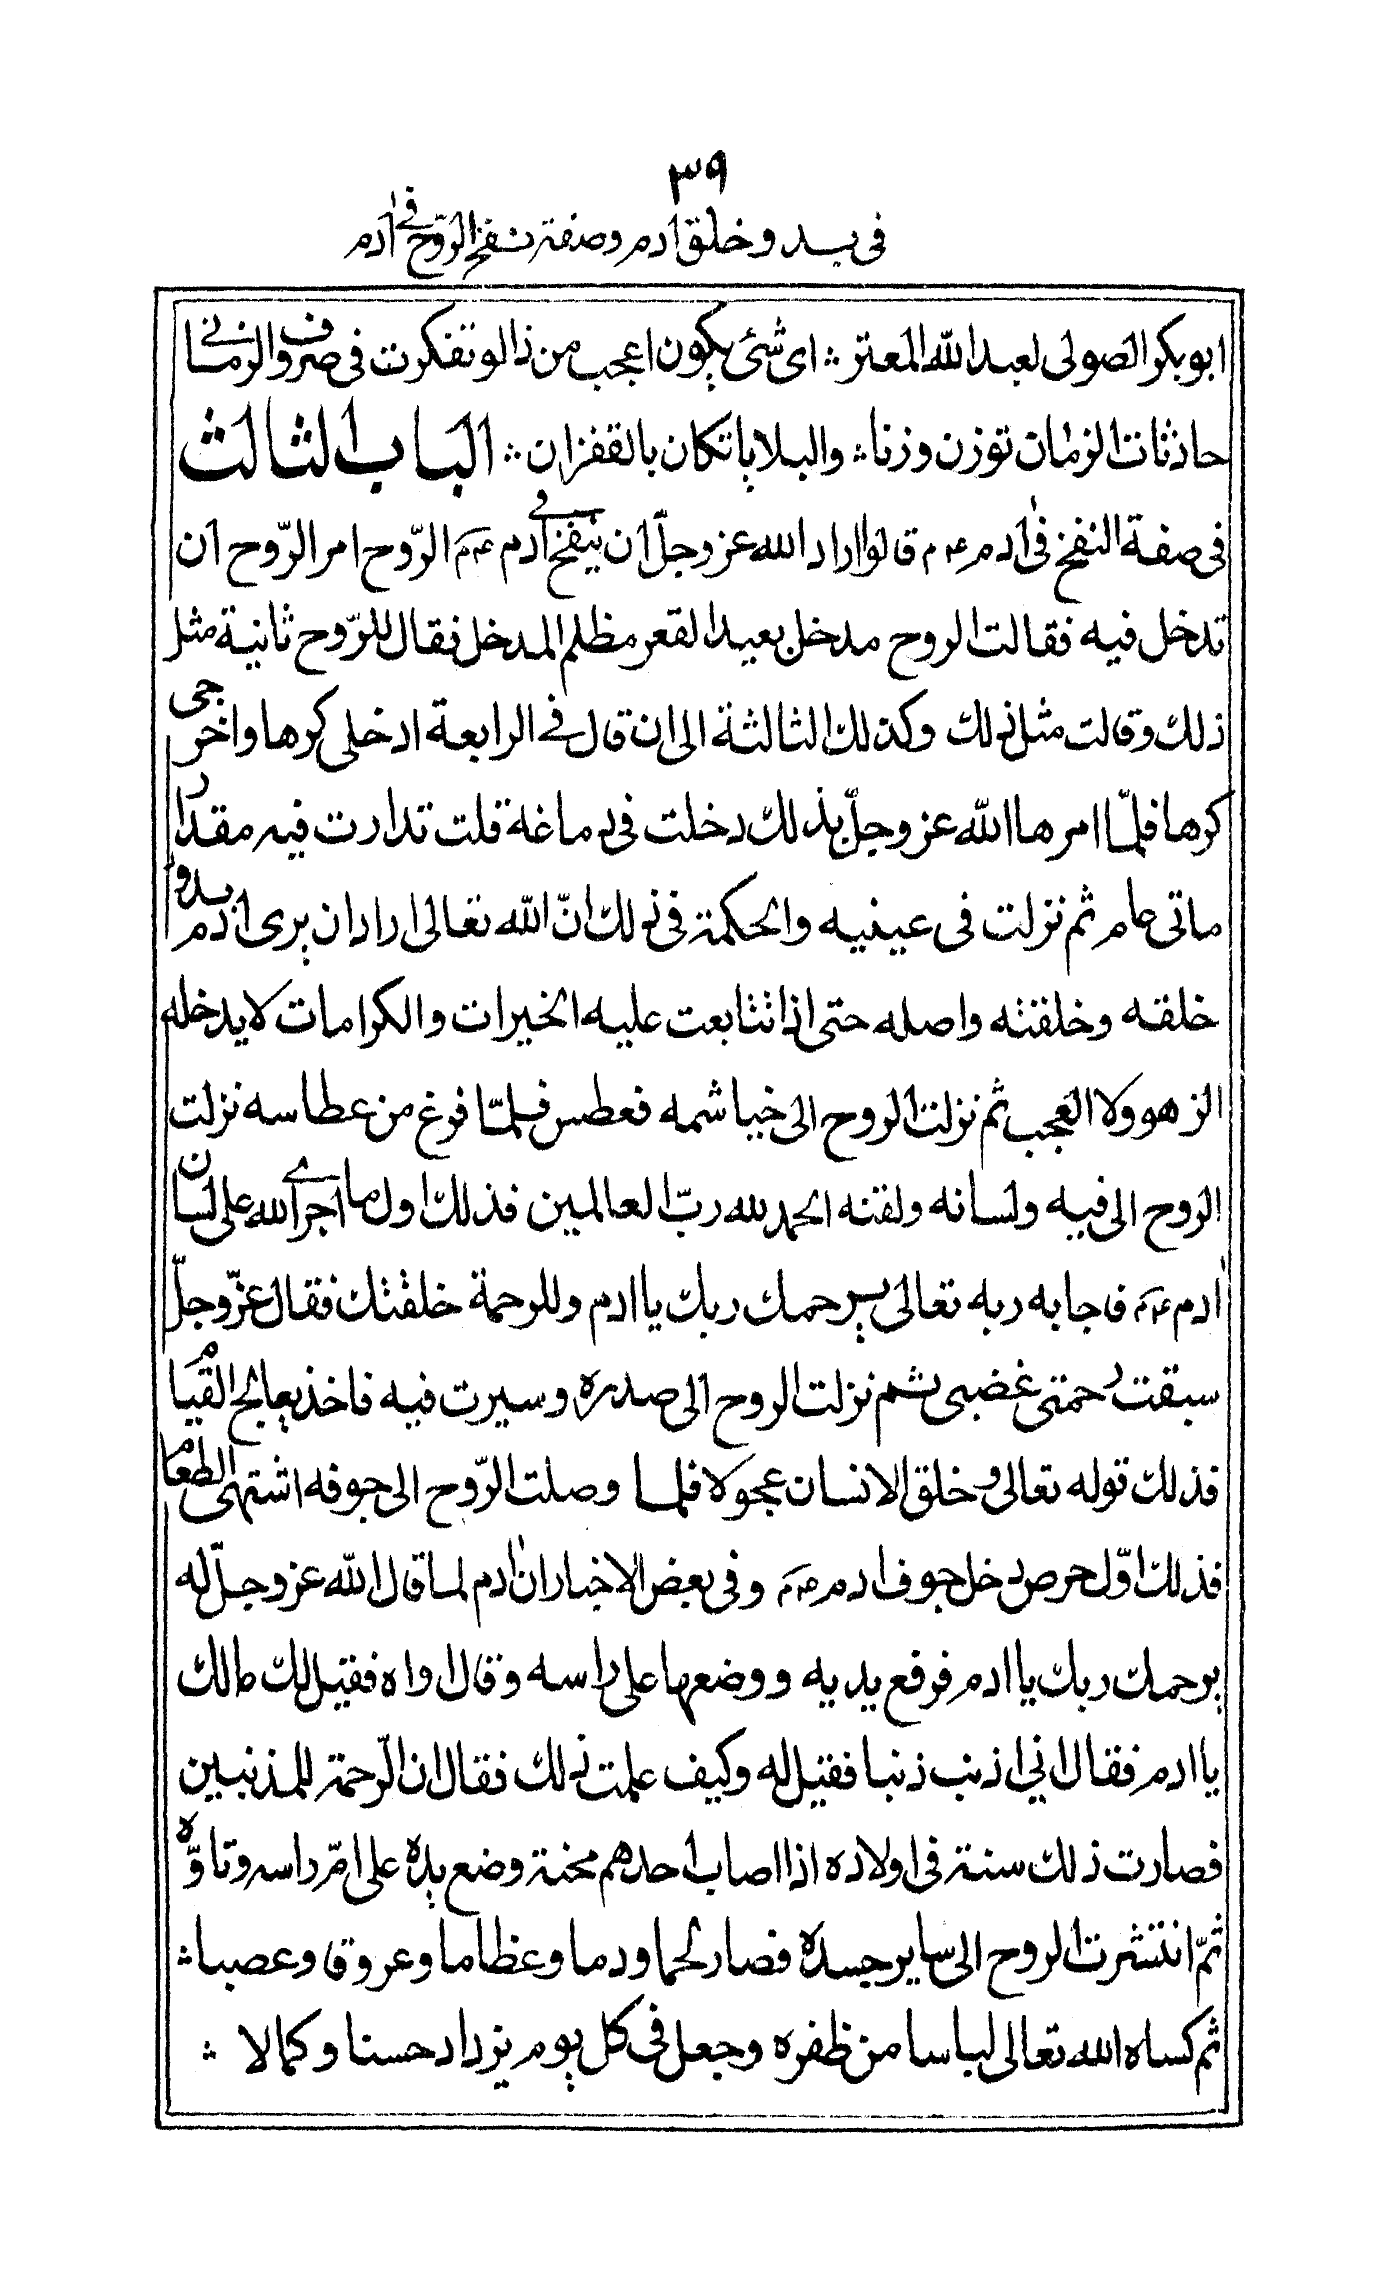 ٣٩
في بدو خلق ادم وصفة نفخ الروح في ادم
ابو بكر الصولى لعبد الله المعتز ؞ اى شئ يكون اعجب من ذا لو تفكرت في صروف الزماني
حادثات الزمان توزن وزنا ؞ والبلايا تكان بالقفزان ؞ الباب الثالث
في صفة النفخ في ادم عم قالوا اراد الله عز وجلّ ان ينفخ في ادم عم الرّوح امر الرّوح ان
تدخل فيه فقالت الروح مدخل بعيد القعر مظلم المدخل فقال للرّوح ثانية مثل
ذلك وقالت مثل ذلك وكذلك الثالثة الى ان قال في الرابعة ادخلى كرها واخرجى
كرها فلمّا امرها الله عز وجلّ بذلك دخلت في دماغه قلت تدارت فيه مقدار
ماتى عام ثم نزلت في عينيه والحكمة في ذلك انّ الله تعالى اراد ان يرى ادم بدو
خلقه وخلقته واصله حتى اذا تتابعت عليه الخيرات والكرامات لا يدخله
الزهو ولا العجب ثم نزلت الروح الى خياشمه فعطس فلمّا فرغ من عطاسه نزلت
الروح الى فيه ولسانه ولقنه الحمد لله ربّ العالمين فذلك اول ما اجراى الله على لسان
ادم عم فاجابه ربه تعالى يرحمك ربك يا ادم وللرحمة خلقتك فقال عزّ وجلّ
سبقت رحمتى غضبى ثم نزلت الروح الى صدره وسيرت فيه فاخذ يعالج القيام
فذلك قوله تعالى وخلق الانسان عجولا فلما وصلت الرّوح الى جوفه اشتهى الطعام
فذلك اوّل حرص دخل جوف ادم عم وفي بعض الاخبار ان ادم لما قال الله عز وجلّ له
يرحمك ربك يا ادم فرفع يديه ووضعها على راسه وقال اواه فقيل لك مالك
يا ادم فقال اني اذنب ذنبا فقيل له وكيف علمت ذلك فقال ان الرّحمة للمذنبين
فصارت ذلك سنة في اولاده اذا اصاب احدهم محنة وضع يده على امّ راسه وتاوّه
ثمّ انتشرت الروح الى ساير جسده فصار لحما ودما وعظاما وعروق وعصبا ؞
ثم كساه الله تعالى لباسا من ظفره وجعل في كل يوم يزداد حسنا وكمالا ؞